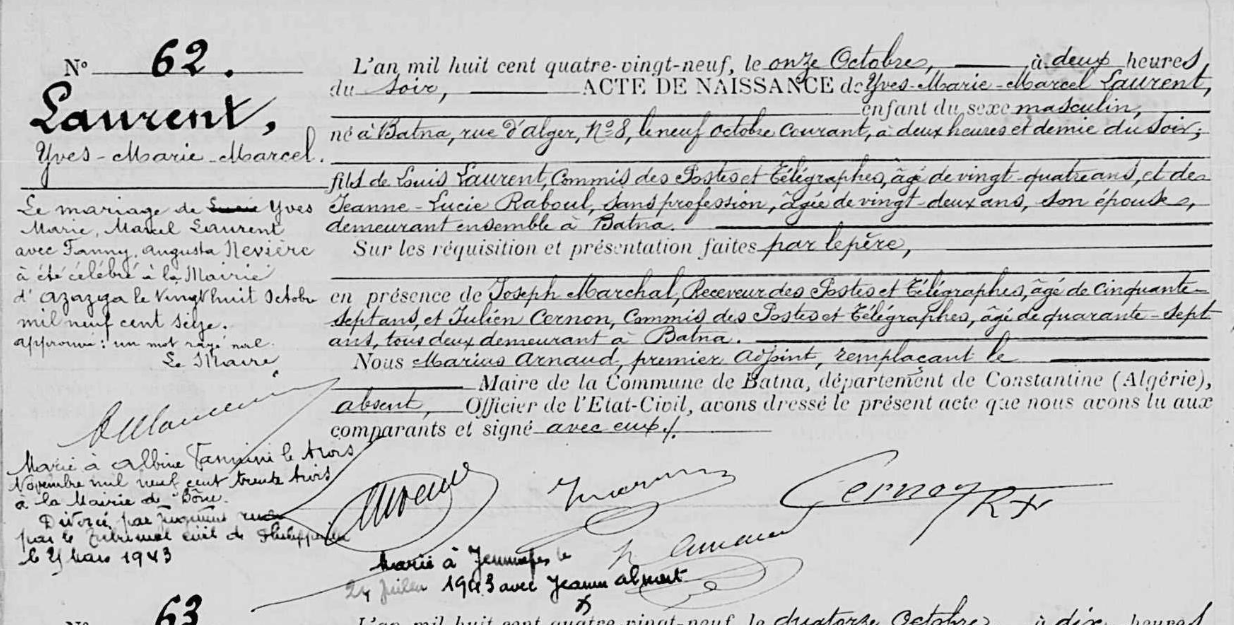 N° 62.
Laurent,
Yves-Marie-Marcel.
Le mariage de Lucie Yves
Marie, Marcel Laurent
avec Fanny, Augusta Nevière
à été célébré à la Mairie
d'Azazga le vingt huit Octobre
mil neuf cent seize.
approuvé: un mot rayé nul.
Le Maire
Marié à Albine Tannini le trois
Novembre mil neuf cent trente trois
à la Mairie de Bône.
Divorcé par jugement
par le Tribunal civil de Philippeville
le 4 mars 1943
L'an mil huit cent quatre-vingt-neuf, le onze Octobre, à deux heures
du soir, ACTE DE NAISSANCE de Yves-Marie-Marcel Laurent,
enfant du sexe masculin,
né à Batna, rue d'Alger, N° 8, le neuf octobre Courant, à deux heures et demie du soir;
fils de Louis Laurent, Commis des Postes et Télégraphes, âgé de vingt-quatre ans, et de
Jeanne-Lucie Raboul, sans profession, âgée de vingt deux ans, son épouse,
demeurant ensemble à Batna.
Sur les réquisition et présentation faites par le père,
en présence de Joseph Marchal, Receveur des Postes et Télégraphes, âgé de Cinquante-
sept ans, et Julien Cernon, Commis des Postes et Télégraphes, âgé de quarante-sept
ans, tous deux demeurant à Batna.
Nous Marius Arnaud, premier Adjoint, remplaçant le
Maire de la Commune de Batna, département de Constantine (Algérie),
absent, Officier de l'Etat-Civil, avons dressé le présent acte que nous avons lu aux
comparants et signé avec eux.
Cernon
Marié à Jemmapes le
24 Juillet 1943 avec Jeanne
N° 63
L'an mil huit cent quatre-vingt-neuf, le quatorze Octobre, à dix heures